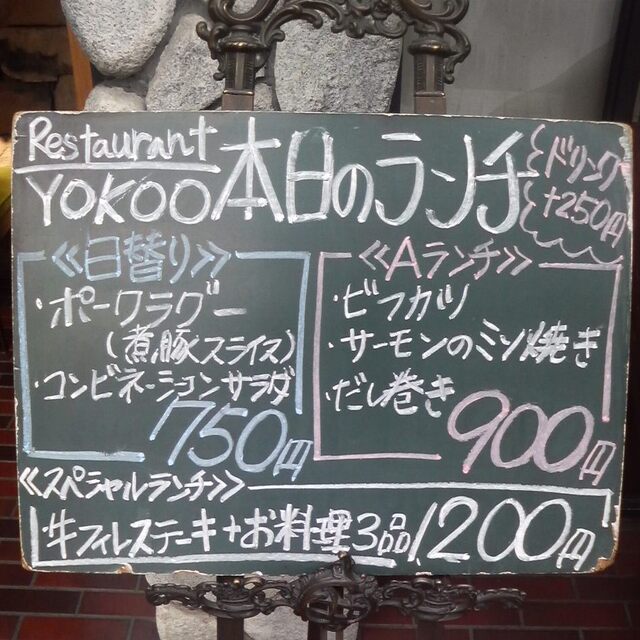 Restaurant
YOKOO 本日のランチ
ドリンク
+250円
≪日替り≫
・ポークラグー
(煮豚スライス)
・コンビネーションサラダ
750円
≪Aランチ≫
・ビフカツ
・サーモンのミソ焼き
・だし巻き
900円
≪スペシャルランチ≫
牛フィレステーキ+お料理3品 1200円